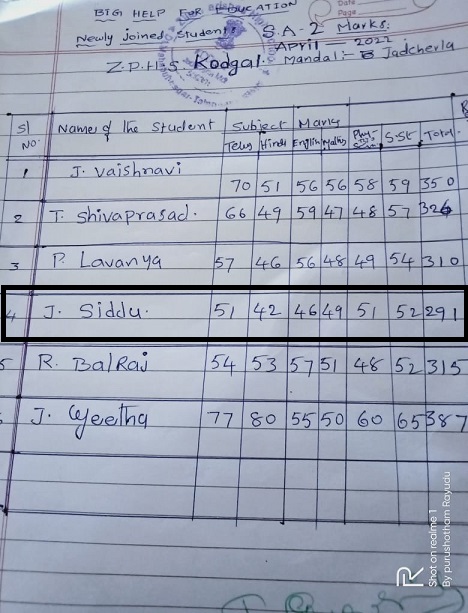 BIG HELP FOR EDUCATION
Date
Page
Newly joined Students S.A-2 Marks:
April - 2022
Z.P.H.S. Kodgal. Mandal:- Jadcherla
Sl No. Name of the Student Subject Marks
Telugu Hindi English Maths Phy.Sci S.St Total
1 J. Vaishnavi 70 51 56 56 58 59 350
2 T. Shivaprasad. 66 49 59 47 48 57 326
3 P. Lavanya 57 46 56 48 49 54 310
4 J. Siddu. 51 42 46 49 51 52 291
5 R. BalRaj 54 53 57 51 48 52 315
J. Geetha 77 80 55 50 60 65 387
Shot on realme 1
By purushotham Rayudu